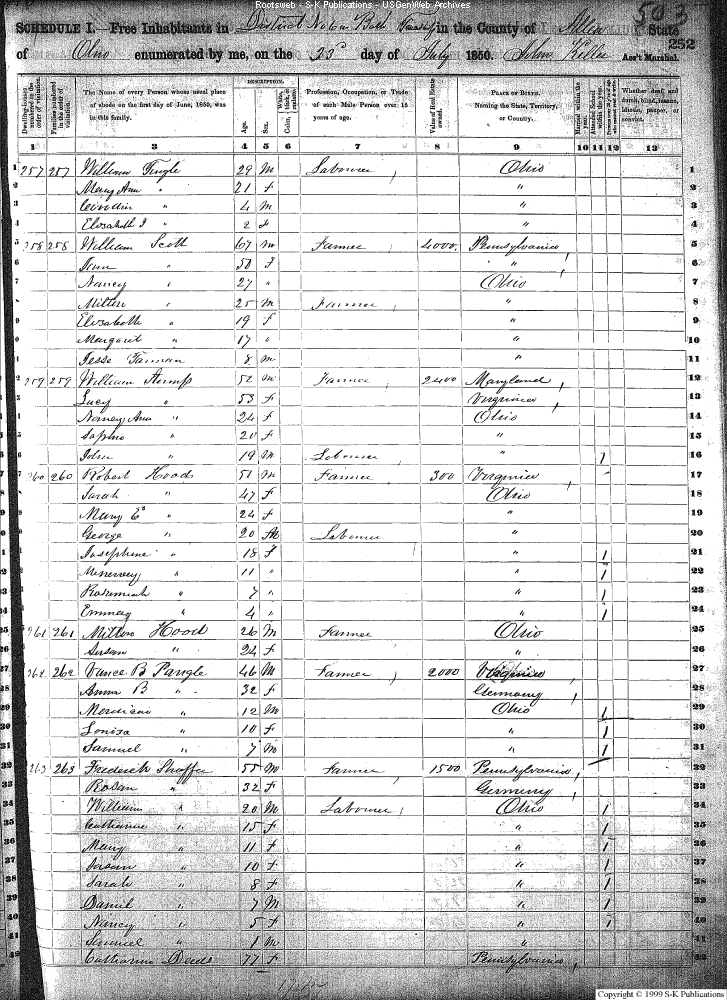 Rootsweb - S-K Publications - USGenWeb Archives
503
SCHEDULE I.—Free Inhabitants in District No 6 in Bath Township in the County of Allen State
252
of Ohio enumerated by me, on the 23d day of July 1850. John Keller Ass't Marshal.
Dwelling-houses numbered in the order of visitation.
Families numbered in the order of visitation.
The Name of every Person whose usual place of abode on the first day of June, 1850, was in this family.
DESCRIPTION.
Age.
Sex.
Color, White, black, or mulatto.
Profession, Occupation, or Trade of each Male Person over 15 years of age.
Value of Real Estate owned.
PLACE OF BIRTH. Naming the State, Territory, or Country.
Married within the year.
Attended School within the year.
Whether deaf and dumb, blind, insane, idiotic, pauper, or convict.
1 2 3 4 5 6 7 8 9 10 11 12 13
1 257 257 William Tingle 29 M Labourer Ohio 1
2 Mary Ann " 21 f " 2
3 " 4 m " 3
4 Elisabeth J " 2 f " 4
5 258 258 William Scott 67 m Farmer 4000 Pennsylvania 5
6 Ann " 50 f " 6
7 Nancy " 27 " Ohio 7
8 Milton " 25 m Farmer " 8
9 Elisabeth " 19 f " 9
10 Margaret " 17 " " 10
11 Jesse 8 m " 11
12 259 259 William Stemp 52 m Farmer 2400 Maryland 12
13 Lucy " 53 f Virginia 13
14 Nancy Ann " 24 f Ohio 14
15 " 20 f " 15
16 John " 19 m Labourer " 1 16
17 260 260 Robert Hood 51 m Farmer 300 Virginia 17
18 Sarah " 47 f Ohio 18
19 Mary E " 24 f " 19
20 George " 20 M Labourer " 20
21 Josephine " 18 f " 1 21
22 Menervey " 11 " " 1 22
23 " 7 " " 1 23
24 Emmay " 4 " " 1 24
25 261 261 Milton Hood 26 M Farmer Ohio 25
26 Susan " 24 f " 26
27 262 262 Vance B Pangle 46 M Farmer 2000 Virginia 27
28 Anna B " 32 f Germany 28
29 " 12 m Ohio 1 29
30 Louisa " 10 f " 1 30
31 Samuel " 7 m " 1 31
32 263 263 Frederick Shaffer 55 M Farmer 1500 Pennsylvania 32
33 Rosan " 32 f Germany 33
34 William " 20 M Labourer Ohio 1 34
35 Catharine " 15 f " 1 35
36 Mary " 11 f " 1 36
37 " 10 f " 1 37
38 Sarah " 8 f " 1 38
39 Daniel " 7 M " 1 39
40 Nancy " 5 f " 1 40
41 Samuel " 1 m " 41
42 Catharine Deeds 77 f Pennsylvania 42
Copyright © 1999 S-K Publications